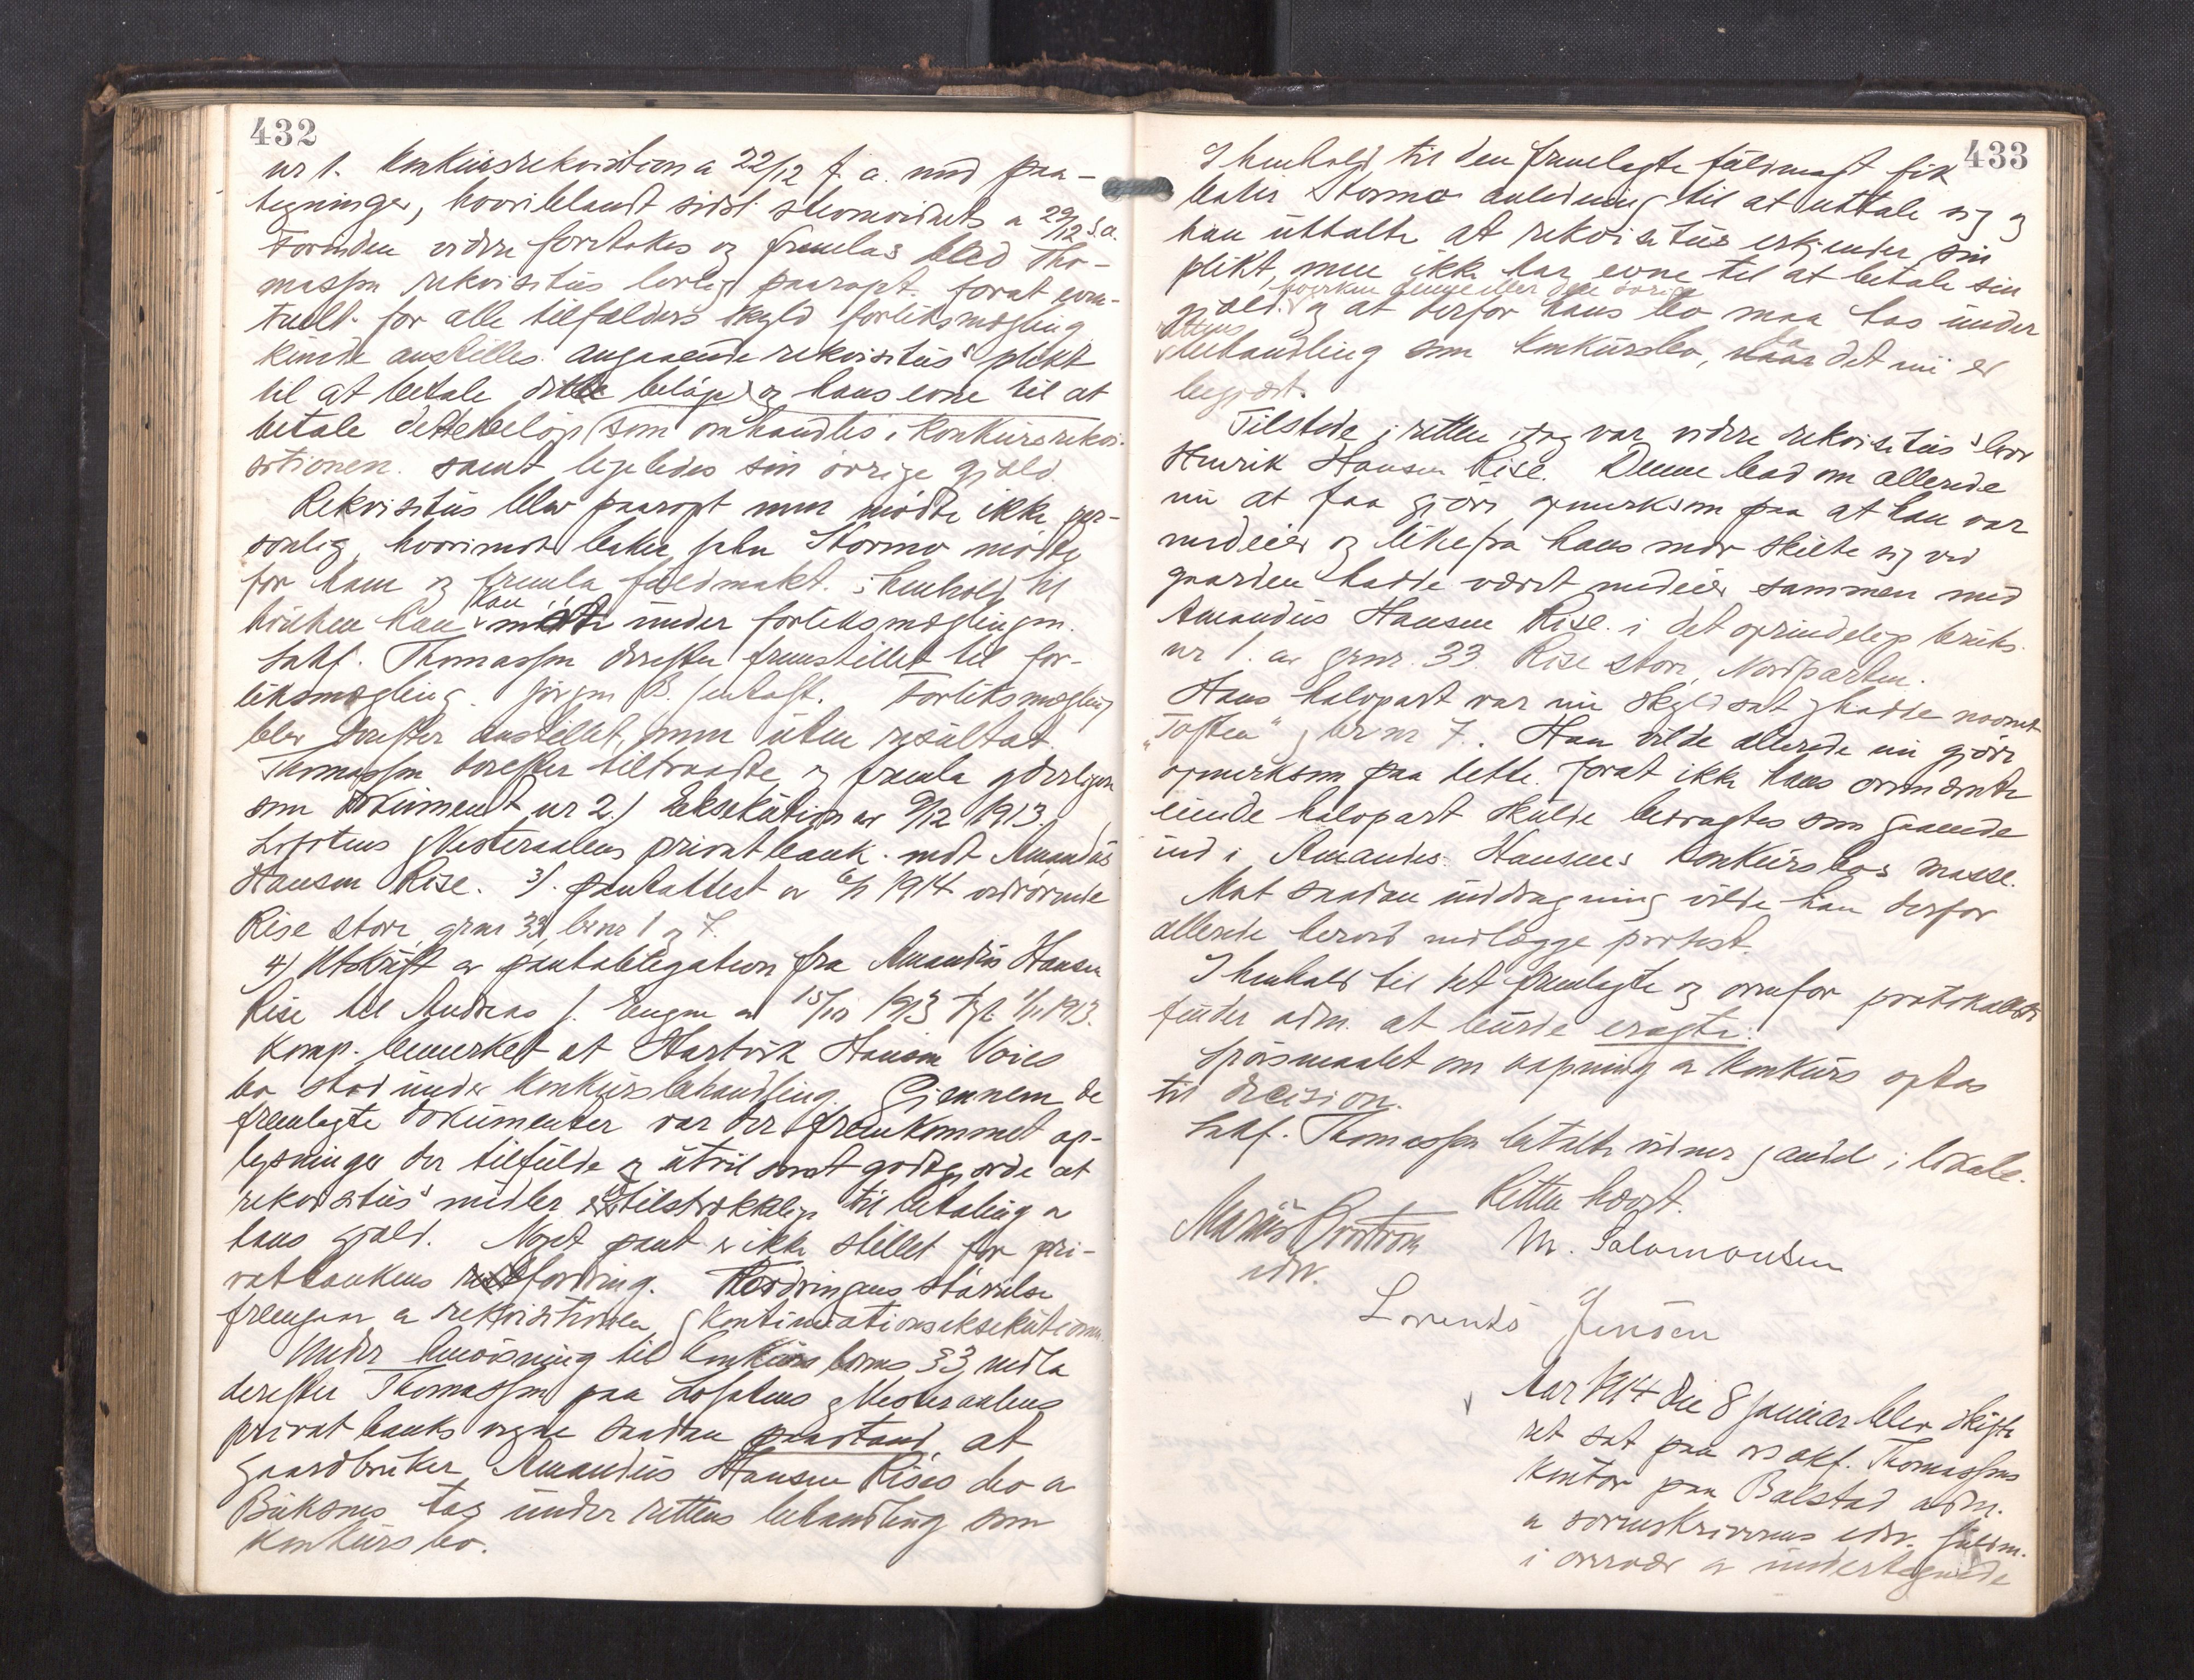 432
nr 1. Konkursrekvisition a 22/12 f. a. med paa-
tegninger, hvoriblandt sidst stevnevidnets a 29/12 s.a.
Forinden videre foretokes og fremlas blev Tho-
massen rekvisitus lovlig paaropt. forat even-
tuelt for alle tilfælders skyld forliksmægling
kunde anstilles angaaende rekvisitus' plikt
til at betale dette beløp og hans evne til at
betale dette beløp (som omhandles i Konkursrekvi-
sitionen. samt ligeledes sin øvrige gjæld.
Rekvisitus blev paaropt men mødte ikke per-
sonlig, hvorimot baker John Stormo mødte
for ham og fremla fuldmakt. i henhold til
hvilken han kan møte under forliksmæglingen.
Sakf. Thomassen derefter fremstillet til for-
liksmægling Jørgen B. Forliksmægling
blev derefter anstillet, men uten resultat.
Thomassen derefter tiltraadte og fremla yderligere
som dokument nr 2.) Eksekution av 9/12 1913
Lofotens & Vesteraalens privatbank mot Amandus
Hansen Rise. 3). pantattest av 6/1 1914 vedrørende
Rise store, grnr 33, brnr 1 og 7.
4) Utskrift av pantobligation fra Amandus Hansen
Rise til Andreas J. Engen av 15/10 1913 tgl. 1/11 1913.
Komp. bemerket at Hartvik Hansen Voies
bo stod under konkursbehandling. Gjennem de
fremlagte dokumenter var der fremkommet op-
lysninger der tilfulde og utvilsomt godtgjorde at
rekvisitus' midler er utilstrækkelig til betaling av
hans gjæld. Noget pant er ikke stillet for pri-
vatbankens fordring. Fordringens størrelse
fremgaar av rekvisitionen & Kontinuationseksekutionen.
Under henvisning til Konkurslovens § 3, nedla
derefter Thomassen paa Lofotens & Vesteraalens
privatbanks vegne saadan paastand, at
gaardbruker Amandus Hansen Rises bo av
Buksnes tas under rettens behandling som
konkursbo.
433
I henhold til den fremlagte fuldmagt fik
baker Stormo anledning til at uttale sig og
han uttalte at rekvisitus erkjender sin
plikt, men ikke har evne til at betale sin
hverken denne eller den øvrige
gjæld. og at derfor hans bo maa tas under
rettens
behandling som konkursbo, da det nu er
begjært.
Tilstede i retten idag var videre rekvisitus's bror
Henrik Hansen Rise. Denne bad om allerede
nu at faa gjøre opmerksom paa at han var
medeier og likefra hans mor skilte sig ved
gaarden hadde været medeier sammen med
Amandus Hansen Rise i det oprindelige bruks
nr 1. av grnr. 33. Rise store, Nordparten.
Hans halvpart var nu skyldsat & hadde navnet
"Toften" brnr 7. Han vilde allerede nu gjøre
opmerksom paa dette. forat ikke hans
eiende halvpart skulde betragtes som gaaende
ind i Amandus Hansens konkursbos masse.
Mot saadan inddragning vilde han derfor
allerede herved nedlægge protest.
I henhold til det fremlagte og ovenfor protokollerte
finder adm. at burde eragte:
Spørsmaalet om aapning av konkurs optas
til decision.
Sakf. Thomassen betalte vidner & andel i lokale.
Retten hævet.
Marius
edv.
M. Salomonsen
Lorents Jensen
Aar 1914 den 8 januar blev skifte
ret sat paa o.r.sakf. Thomassens
kontor paa Balstad adm.
av sorenskriverens edv. fuldm.
i overvær av undertegnede